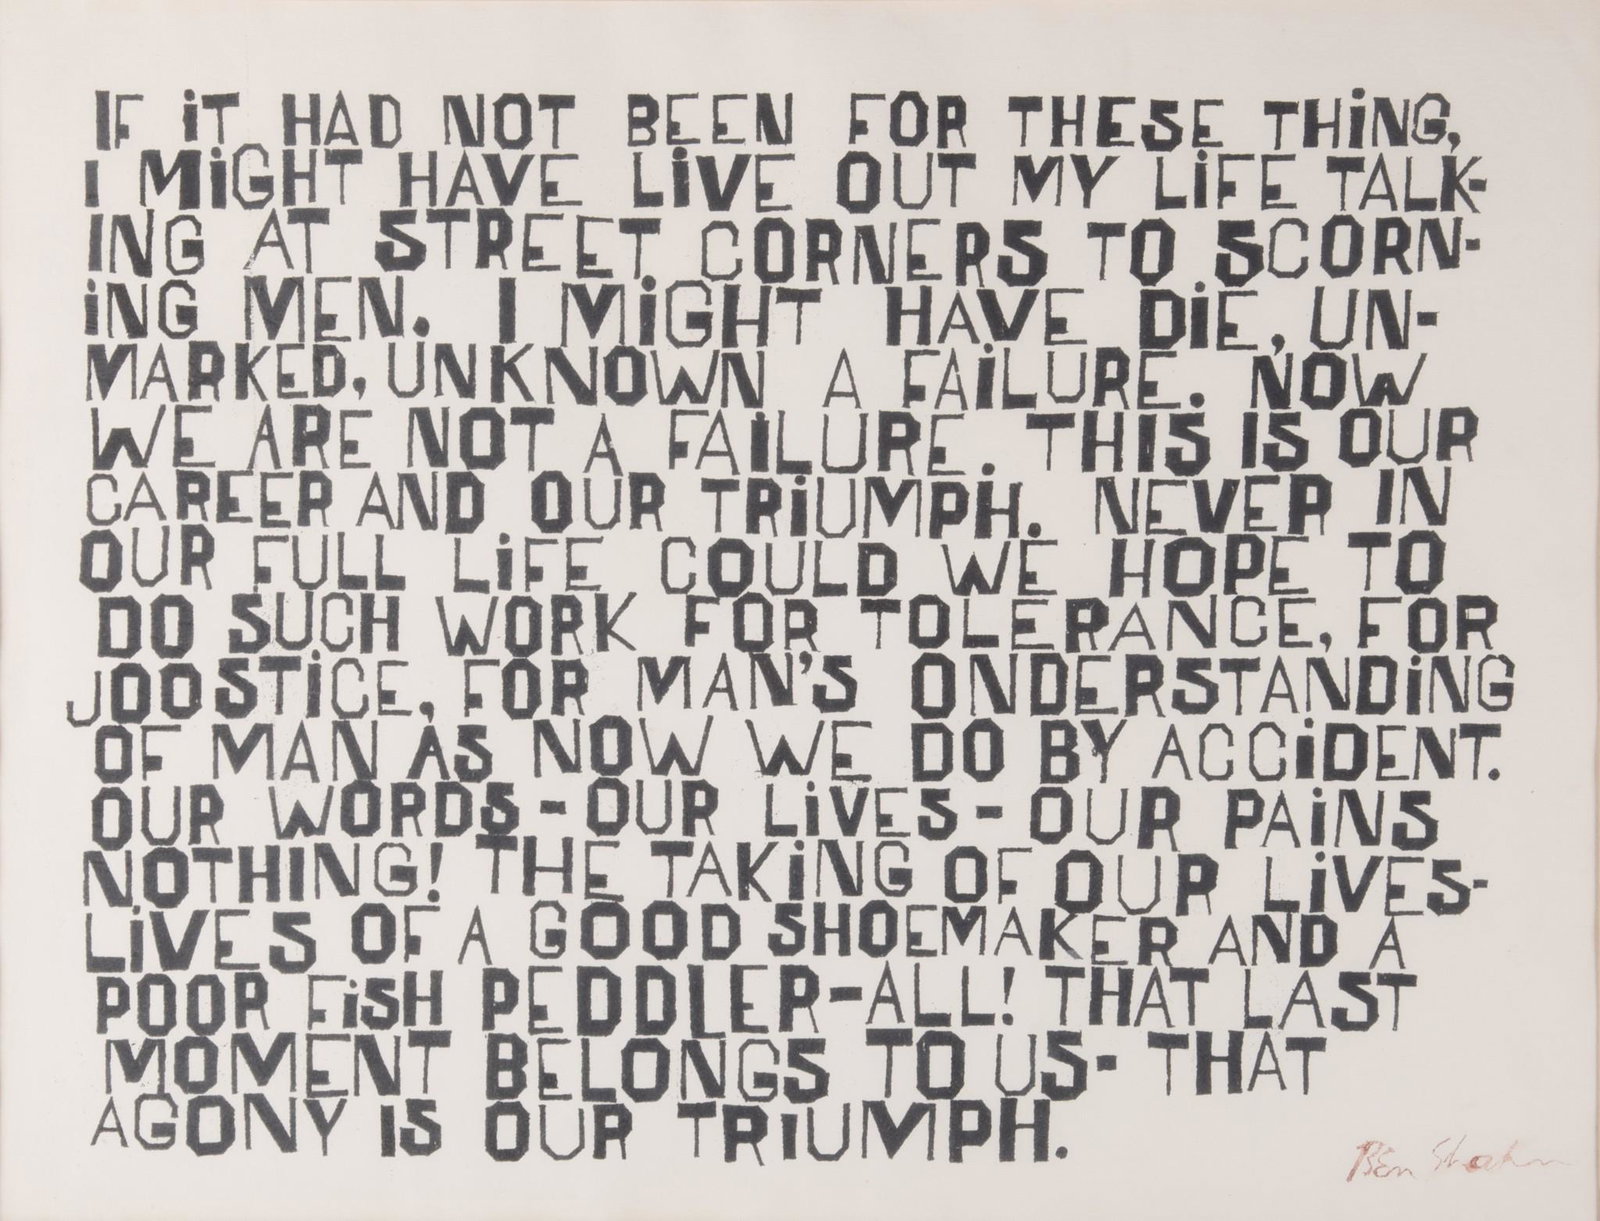 IF iT HAD NOT BEEN FOR THESE THiNG,
I MiGHT HAVE LiVE OUT MY LiFE TALK-
ING AT STREET CORNERS TO SCORN-
iNG MEN. I MiGHT HAVE DiE, UN-
MARKED, UNKNOWN A FAiLURE. NOW
WE ARE NOT A FAiLURE. THIS IS OUR
CAREER AND OUR TRiUMPH. NEVER IN
OUR FULL LiFE COULD WE HOPE TO
DO SUCH WORK FOR TOLERANCE, FOR
JOOSTiCE, FOR MAN'S ONDERSTANDiNG
OF MAN AS NOW WE DO BY ACCiDENT.
OUR WORDS - OUR LiVES - OUR PAiNS
NOTHING! THE TAKiNG OF OUR LiVES-
LiVES OF A GOOD SHOEMAKER AND A
POOR FiSH PEDDLER-ALL! THAT LAST
MOMENT BELONGS TO US- THAT
AGONY IS OUR TRiUMPH.
Ben Shahn